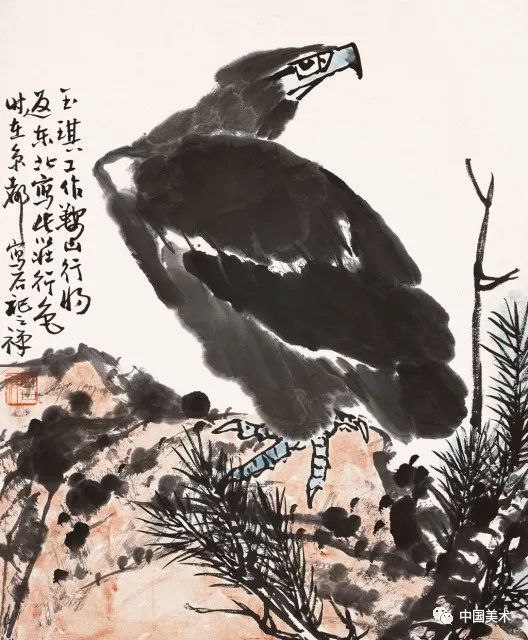 玉琪工作鞍山行将
返东北寫此壮行色
时在京都寫 記之禅
中国美术